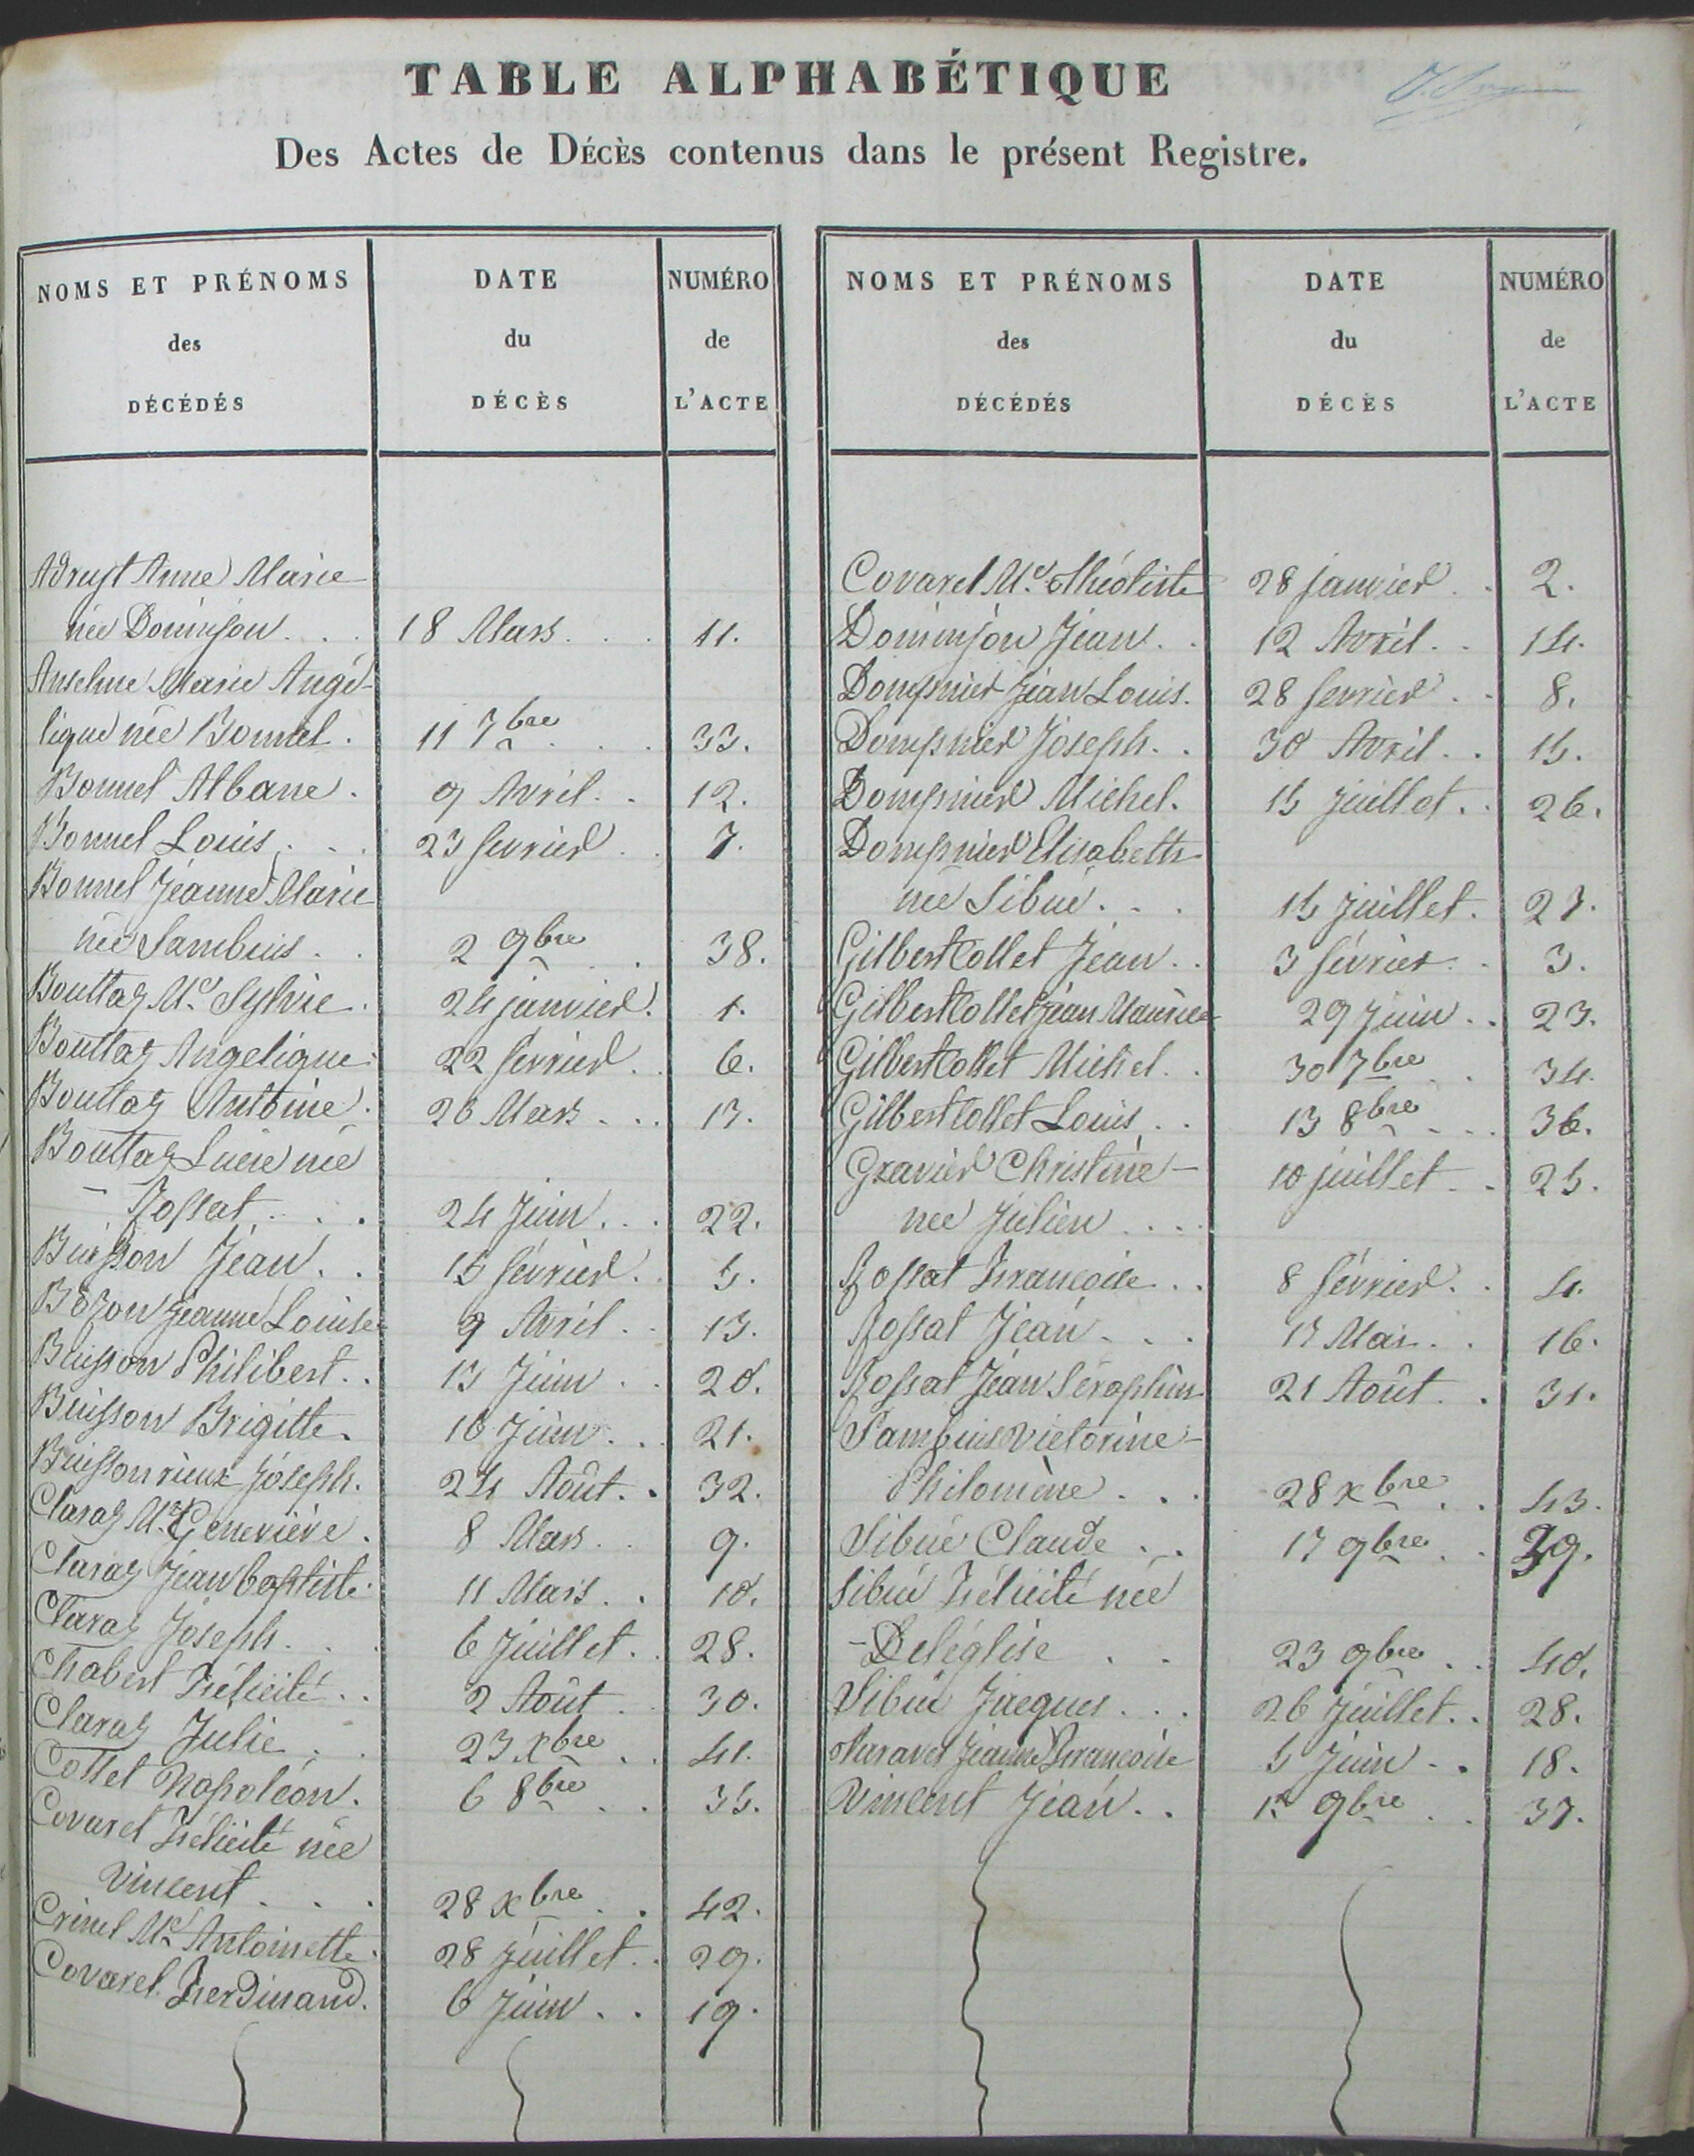 TABLE ALPHABÉTIQUE
Des Actes de DÉCÈS contenus dans le présent Registre.
NOMS ET PRÉNOMS DATE NUMÉRO
des du de
DÉCÉDÉS DÉCÈS L'ACTE
Adruyt Anne Marie
née Dominjon . . . 18 Mars . . . 11.
Anselme Marie Angé-
lique née Bonnel . 11 7bre . . . 33.
Bonnel Albane . 9 Avril . . 12.
Bonnel Louis . . . 23 fevrier . . 7.
Bonnel Jeanne Marie
née Sambuis . . 2 9bre . . 38.
Bouttaz Me Sylvie . 24 janvier . 1.
Bouttaz Angelique . 22 fevrier . . 6.
Bouttaz Antoine . 26 Mars . . . 13.
Bouttaz Lucie née
- Rossat . . . 24 Juin . . . 22.
Buisson Jean . . 15 février . . 5.
Bozon Jeanne Louise 9 Avril . . 13.
Buisson Philibert . . 13 Juin . . 20.
Buisson Brigitte . 16 Juin . . . 21.
Buissonrieux Joseph . 24 Août . . 32.
Claraz Me Geneviève . 8 Mars . . 9.
Claraz Jean baptiste . 11 Mars . . 10.
Claraz Joseph . . . 6 Juillet . . 28.
Chabert Félicité . . 2 Août . 30.
Claraz Julie . . 23 Xbre . . 41.
Collet Napoléon . 6 8bre . . 35.
Covarel Félicité née
Vincent . . . 28 Xbre . . 42.
Crinel Me Antoinette . 28 Juillet . . 29.
Covarel Ferdinand . 6 Juin . . 19.
NOMS ET PRÉNOMS DATE NUMÉRO
des du de
DÉCÉDÉS DÉCÈS L'ACTE
Covarel Me Théotiste 28 janvier . . 2.
Dominjon Jean . . 12 Avril . . 14.
Dompnier Jean Louis . 28 fevrier . . 8.
Dompnier Joseph . . 30 Avril . . 15.
Dompnier Michel . 15 juillet . . 26.
Dompnier Elisabeth
née Sibué . . . 15 juillet . 27.
Gilbert Collet Jean . . 3 février . . 3.
Gilbert Collet Jean Maurice 29 juin . . 23.
Gilbert Collet Michel . . 30 7bre . 34.
Gilbert Collet Louis . . 13 8bre . . . 36.
Gravier Christine - 10 juillet . . 25.
née Julien . . . .
Rossat Françoise . . 8 février . . 4.
Rossat Jean . . . 17 Mai . . 16.
Rossat Jean Séraphin 21 Août . . 31.
Sambuis Victorine -
Philomène . . . 28 Xbre . . 43.
Sibué Claude . . . 17 9bre . . 39.
Sibué Félicité née
- Deléglise . . 23 9bre . . 40.
Sibué Jacques . . . 26 Juillet . . 28.
Jeanne Françoise 5 Juin . . 18.
Vincent Jean . . 1r 9bre . . 37.